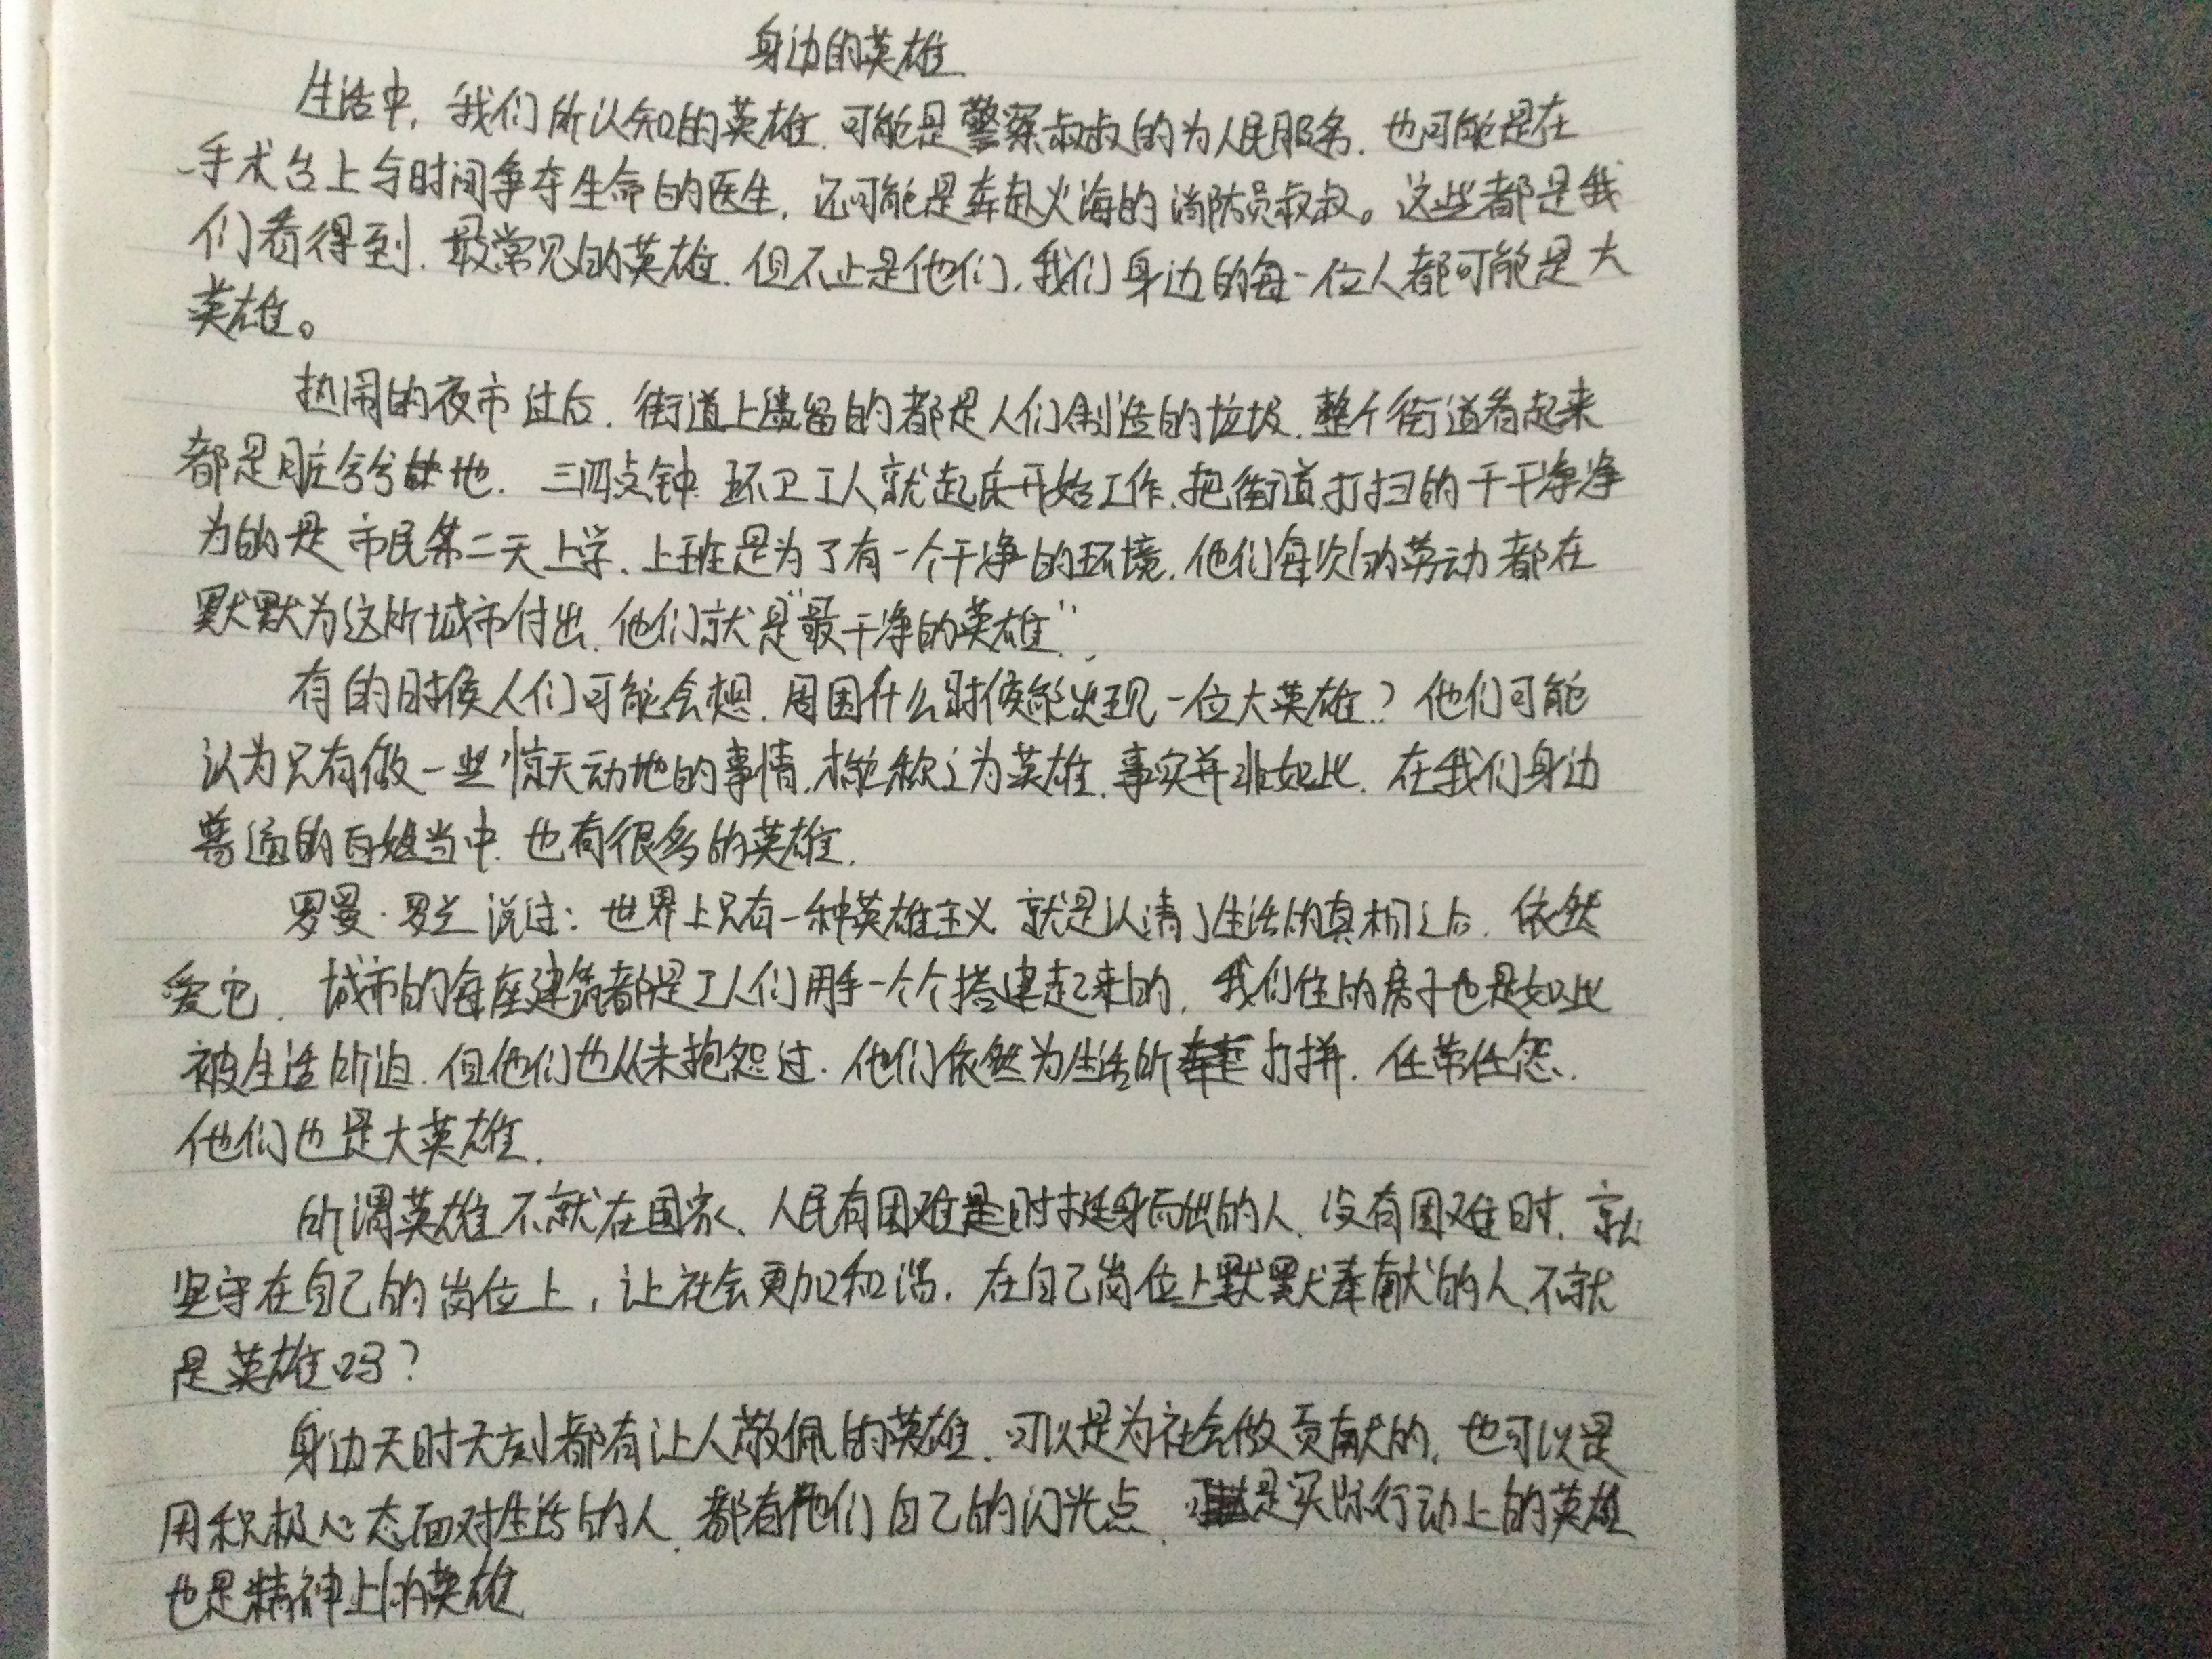 身边的英雄
生活中，我们所认知的英雄，可能是警察叔叔的为人民服务，也可能是在
手术台上与时间争夺生命的医生，还可能是奔赴火海的消防员叔叔。这些都是我
们看得到，最常见的英雄，但不止是他们，我们身边的每一位人都可能是大
英雄。
热闹的夜市过后，街道上遗留的都是人们制造的垃圾，整个街道看起来
都是脏兮兮地，三四点钟 环卫工人就起床开始工作，把街道打扫的干干净净
为的是市民第二天上学、上班是为了有一个干净的环境，他们每次的劳动都在
默默为这所城市付出，他们就是“最干净的英雄”.
有的时候人们可能会想，周围什么时候能出现一位大英雄？他们可能
认为只有做一些惊天动地的事情，才能称之为英雄，事实并非如此，在我们身边
普通的百姓当中，也有很多的英雄.
罗曼·罗兰说过：世界上只有一种英雄主义 就是认清了生活的真相之后，依然
爱它. 城市的每座建筑都是工人们用手一个个搭建起来的，我们住的房子也是如此
被生活所迫，但他们也从未抱怨过，他们依然为生活所打拼，任劳任怨.
他们也是大英雄.
所谓英雄不就在国家、人民有困难时挺身而出的人，没有困难时，就
坚守在自己的岗位上，让社会更加和谐，在自己岗位上默默奉献的人，不就
是英雄吗？
身边天时天刻都有让人敬佩的英雄，可以是为社会做贡献的，也可以是
用积极心态面对生活的人，都有他们自己的闪光点，是实际行动上的英雄
也是精神上的英雄